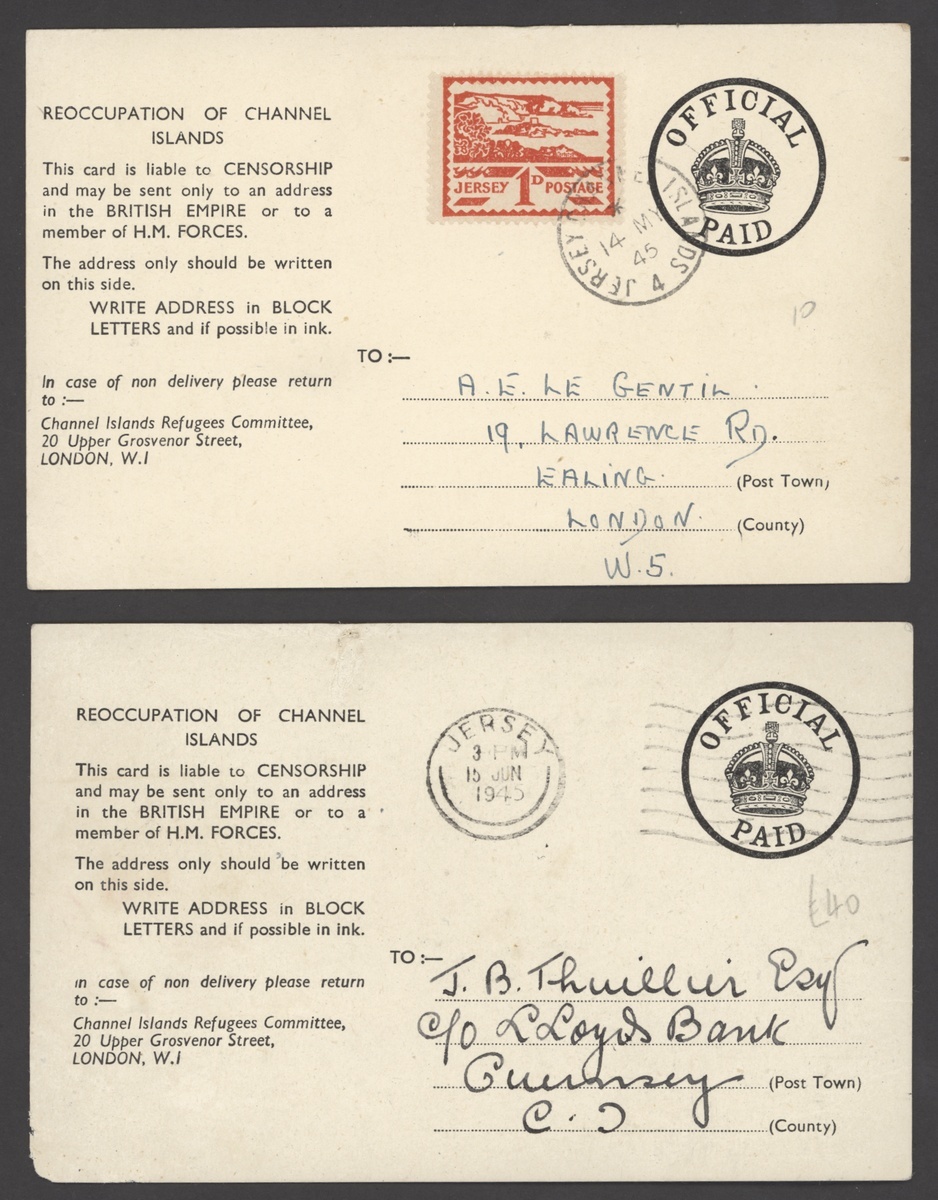 REOCCUPATION OF CHANNEL
ISLANDS
This card is liable to CENSORSHIP
and may be sent only to an address
in the BRITISH EMPIRE or to a
member of H.M. FORCES.
The address only should be written
on this side.
WRITE ADDRESS in BLOCK
LETTERS and if possible in ink.
In case of non delivery please return
to :—
Channel Islands Refugees Committee,
20 Upper Grosvenor Street,
LONDON, W.I
JERSEY 1D POSTAGE
JERSEY ISLANDS
14 MY
45
4
OFFICIAL
PAID
10
TO :—
A. E. LE GENTIL.
19, LAWRENCE RD.
EALING. (Post Town)
LONDON. (County)
W.5.
REOCCUPATION OF CHANNEL
ISLANDS
This card is liable to CENSORSHIP
and may be sent only to an address
in the BRITISH EMPIRE or to a
member of H.M. FORCES.
The address only should be written
on this side.
WRITE ADDRESS in BLOCK
LETTERS and if possible in ink.
In case of non delivery please return
to :—
Channel Islands Refugees Committee,
20 Upper Grosvenor Street,
LONDON, W.I
JERSEY
3 PM
15 JUN
1945
OFFICIAL
PAID
£40
TO :—
J. B. Thuillier Esq
c/o LLoyds Bank
Guernsey (Post Town)
C. I (County)